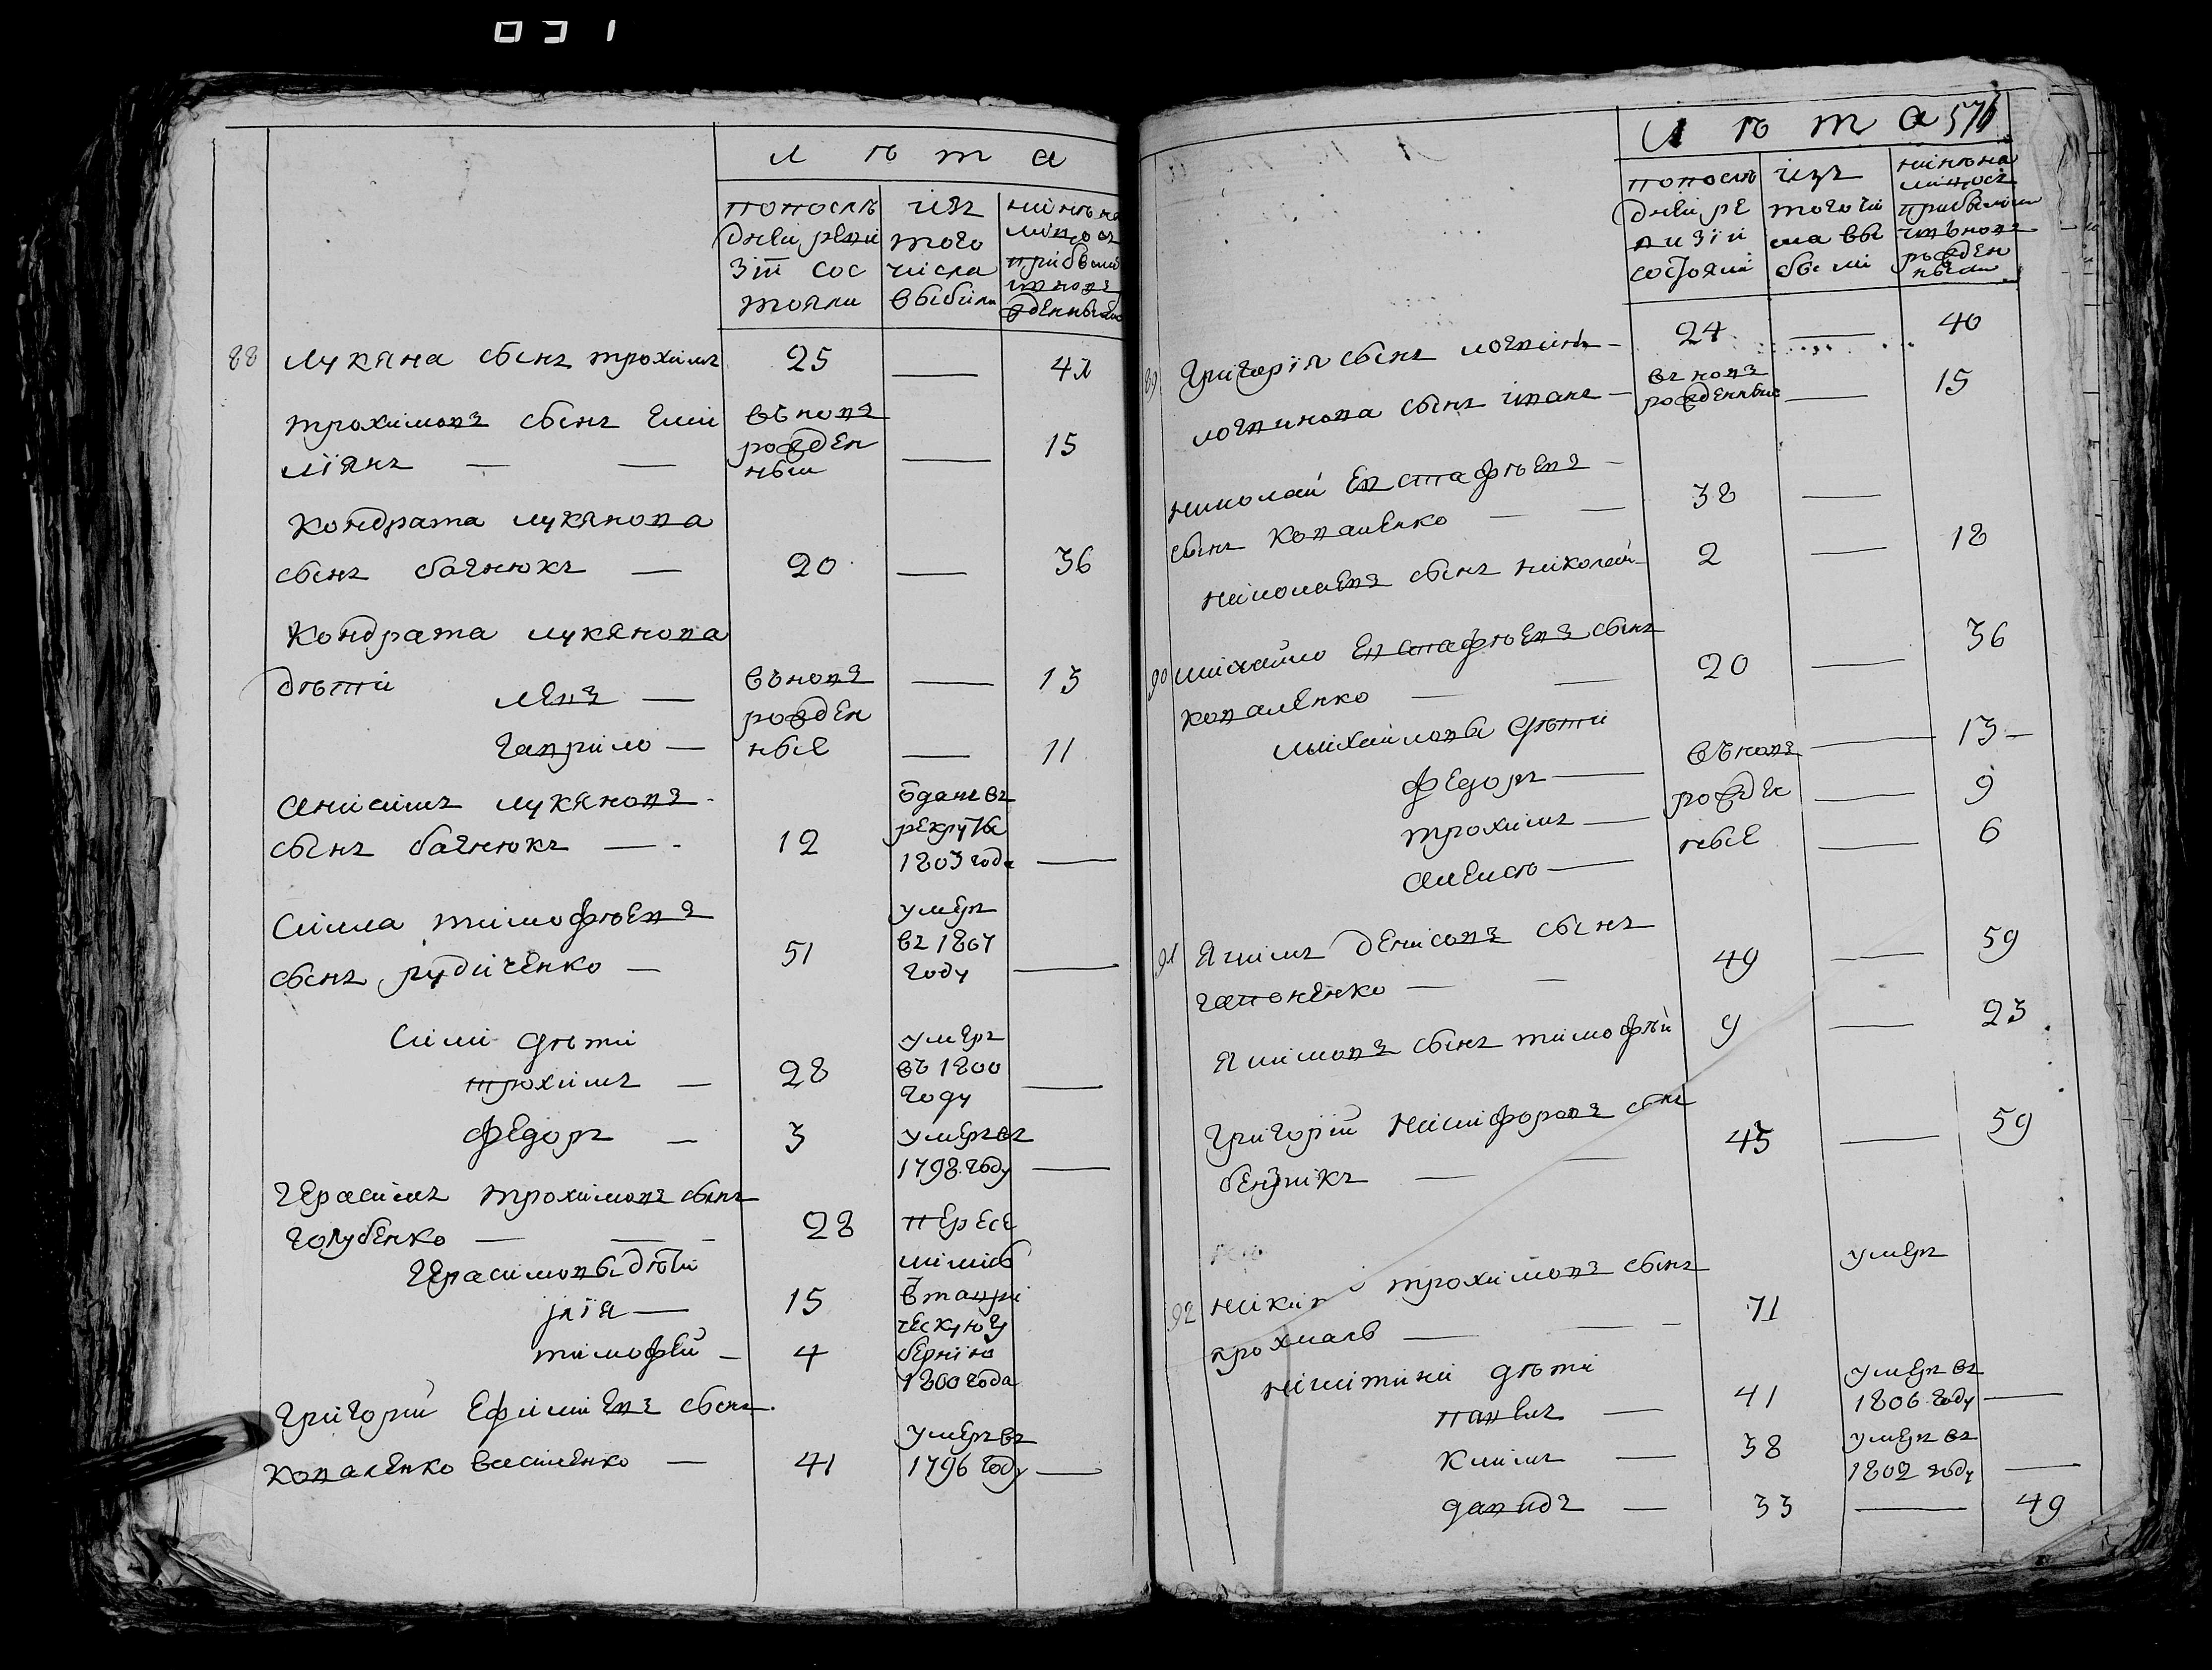 031
Л ѣ т а
попослѣ
дней реви
зіи сос
тояли
изъ
того
числа
выбыли
нинѣ на
лицо съ
прибылыми
и новоро
жденными
88 Лукяна сынъ трохимъ 25 — 41
трохимовъ сынъ Еми
ліянъ — —
въ новѣ
рожден
ный — 15
Кондрата лукянова
сынъ багнюкъ — 20 — 36
Кондрата лукянова
дѣти левъ — въ новѣ — 13
гаврило — рожден
ные — 11
Анисимъ лукяновъ
сынъ багнюкъ — 12
отданъ въ
рекруты
1803 года —
Сила тимофѣевъ
сынъ рудиченко — 51
умеръ
въ 1807
году —
Сили дѣти
трохимъ — 28
умеръ
въ 1800
году —
федоръ — 3
умеръ въ
1798 году —
Герасимъ трохимовъ сынъ
голубенко — — 28
Герасимовы дѣти
илія — 15
тимофей — 4
пересе
лились
в таври
ческую гу
бернію
1800 года
Григорій Ефимиевъ сынъ
коваленко василенко — 41
умеръ въ
1796 году —
Л ѣ т а 576
попослѣ
дней ре
визіи
состояли
изъ
того чи
сла вы
были
нинѣ на
лицо съ
прибылыми
и въ новѣ
рожден
ными
89 Григорія сынъ логвинъ — 24 — 40
логвинова сынъ иванъ — въ новѣ
рожденный — 15
Николай Евстафѣевъ —
сынъ коваленко — — 38 —
николаевъ сынъ николай — 2 — 18
90 михайло Евстафѣевъ сынъ
коваленко — — 20 — 36
михайловы дѣти
федоръ — въ новѣ — 13 —
трохимъ — рожден — 9
Алексѣ — ные — 6
91 Якимъ денисовъ сынъ
гапоненко — — 49 — 59
Якимовъ сынъ тимофѣй 9 — 23
Григорій Никифоровъ сынъ
бензикъ — — 45 — 59
92 трохимовъ сынъ
— — 71
умеръ
никитини дѣти
павелъ — 41
умеръ въ
1806 году —
климъ — 38
умеръ въ
1802 году —
давидъ — 33 — 49